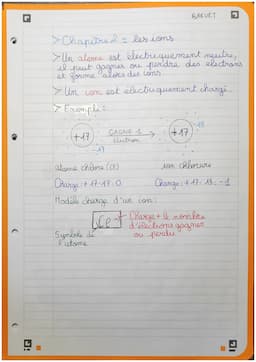 BARUET
> Chapitre 2 = les ions
> Un atome est électriquement neutre,
il peut gagner ou perdre des électrons
et forme alors des ions.
> Un ion est électriquement chargé.
> Exemple :
+17 GAGNE 1 électron +17 -18
-17
atome chlore (Cl) ion chlorure
Charge : +17-17 : 0 Charge : +17-18 = -1
Modèle charge d'un ion :
Cl Charge + le nombre
d'électrons gagner
ou perdu
Symbole de
l'atome